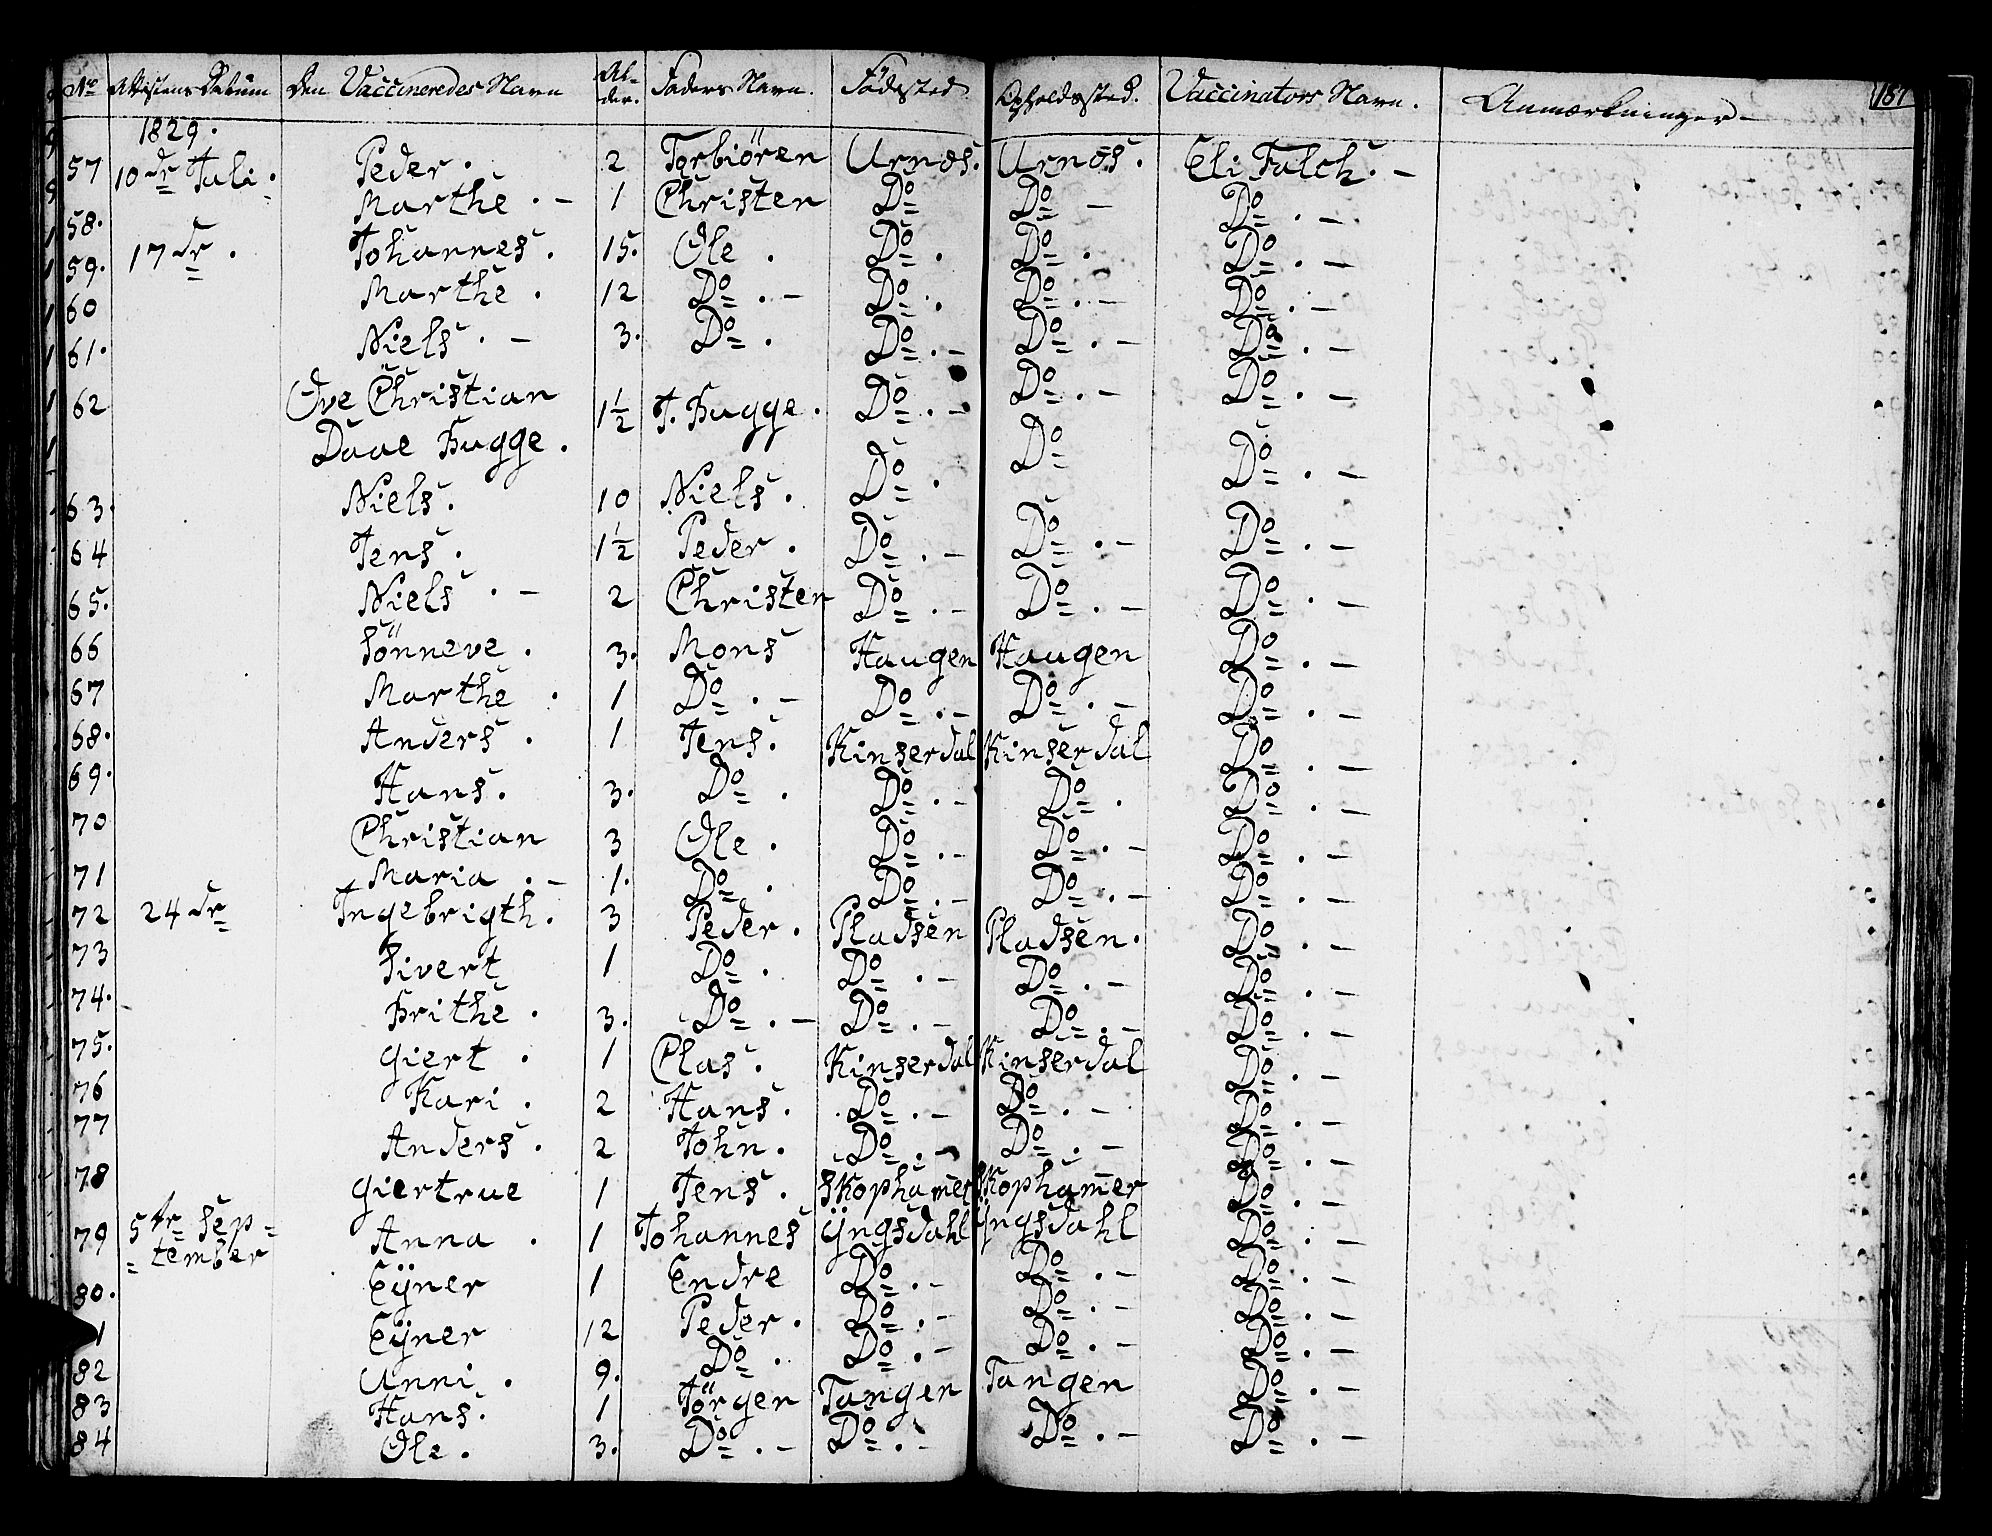 No Attestens Datum Den Vaccineredes Navn Al-der. Faders Navn. Födested Opholdssted. Vaccinators Navn. Anmærkninger 187
1829.
57 10de Juli. Peder. 2 Torbiören Urnæs. Urnæs. Eli Falch. -
58. Marthe. - 1 Christen Do Do - Do. -
59. 17de. Johannes. 15. Ole. Do. Do. Do. -
60 Marthe. 12 Do. - Do. Do. - Do. -
61. Niels. - 3. Do. Do. - Do. - Do. -
62 Ove Christian 1½ J. Bugge. Do. - Do. - Do. -
Daae Bugge. Do
63. Niels. 10 Niels. Do. Do. -
64 Jens. 1½ Peder. Do. - Do. - Do. -
65. Niels. - 2 Christen Do. - Do. - Do. -
66 Sönneve. 3. Mons Haugen Haugen Do. -
67 Marthe. 1 Do. - Do. - Do. - Do. -
68. Anders. 1 Jens. Kinserdal Kinserdal Do. -
69. Hans. 3. Do. Do. - Do. Do. -
70 Christian 3 Ole. Do. - Do. - Do. -
71 Maria. - 1. Do. Do. - Do. - Do. -
72 24de Ingebrigth. 3 Peder. Pladsen Pladsen. Do. -
73 Sivert 1 Do. Do. - Do. - Do. -
74. Brithe. 3. Do. - Do. - Do. - Do. -
75. Giert. 1 Clas. Kinserdal Kinserdal Do. -
76 Kari. 2 Hans. Do. - Do. - Do. -
77 Anders. 2 John. Do. - Do. - Do. -
78 Giertrue 1 Jens. Skophamer Skophamer Do. -
79 5te Sep= Anna. 1 Johannes Yngsdahl Yngsdahl Do. -
=tember
80. Eÿner 1 Endre Do. - Do. - Do. -
1 Eÿner 12 Peder. Do. - Do. - Do. -
82 Anni. 9. Do. Do. - Do. - Do. -
83 Hans. 1 Jörgen Tangen Tangen Do. -
84 Ole. 3. Do. - Do. - Do. - Do. -